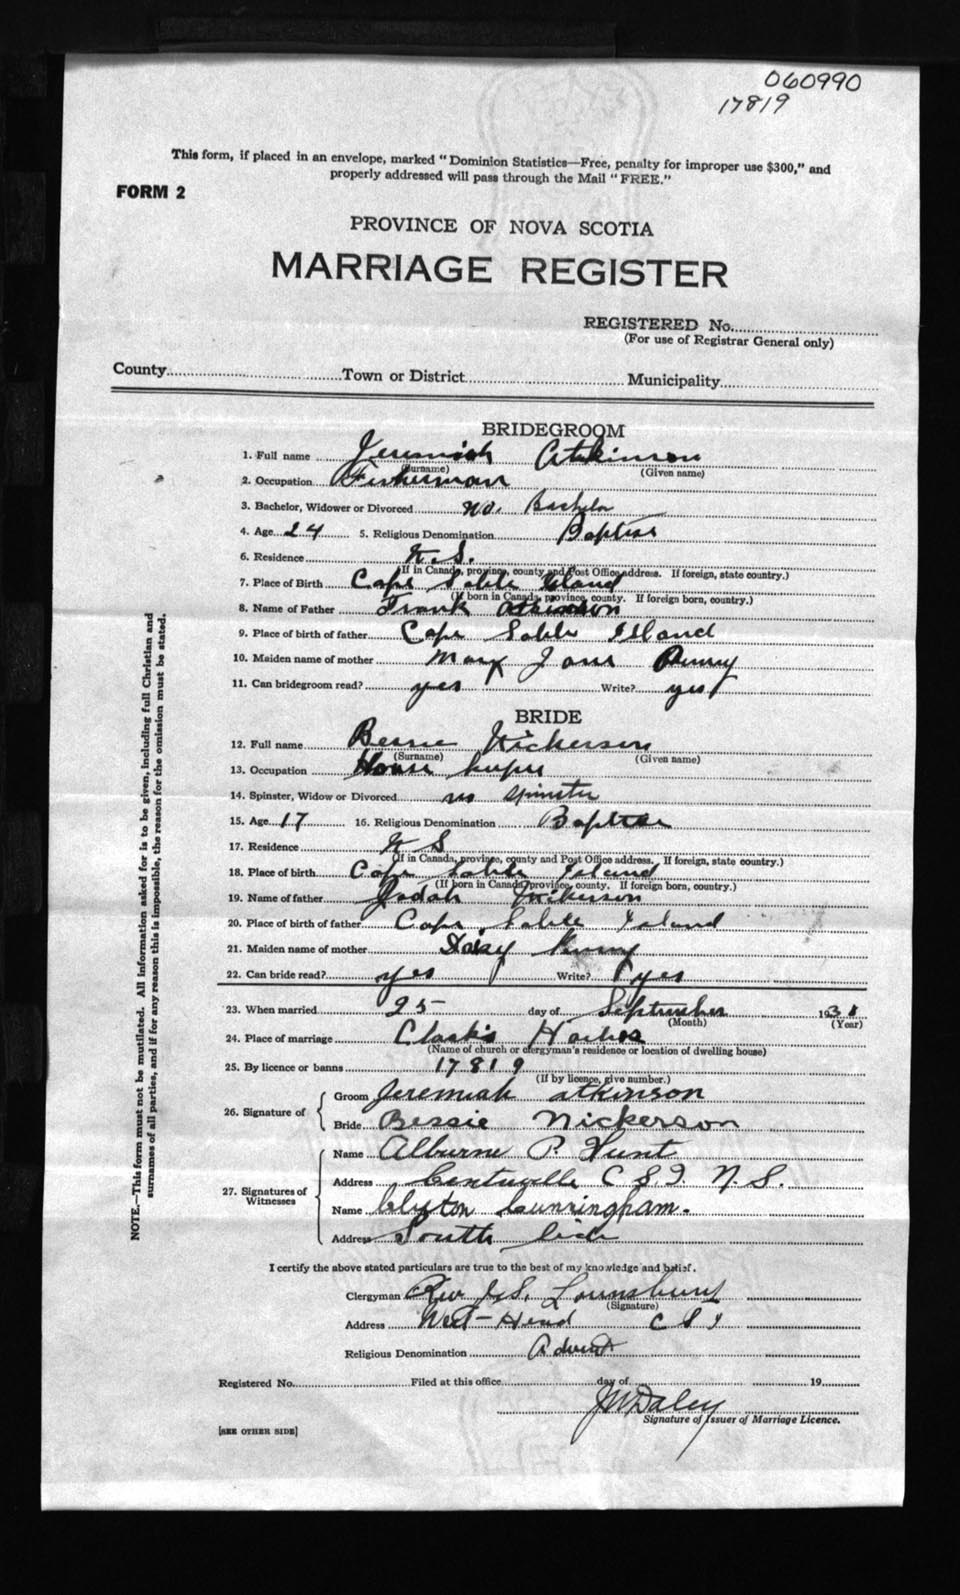 060990
17819
This form, if placed in an envelope, marked "Dominion Statistics—Free, penalty for improper use $300," and
properly addressed will pass through the Mail "FREE."
FORM 2
PROVINCE OF NOVA SCOTIA
MARRIAGE REGISTER
REGISTERED No.
(For use of Registrar General only)
County Town or District Municipality
BRIDEGROOM
1. Full name Jeremiah Atkinson
(Surname) (Given name)
2. Occupation Fisherman
3. Bachelor, Widower or Divorced no. Bachelor
4. Age 24 5. Religious Denomination Baptist
6. Residence N.S.
(If in Canada, province, county and Post Office address. If foreign, state country.)
7. Place of Birth Cape Sable Island
(If born in Canada, province, county. If foreign born, country.)
8. Name of Father Frank Atkinson
9. Place of birth of father Cape Sable Island
10. Maiden name of mother Mary Jane Penny
11. Can bridegroom read? yes Write? yes
BRIDE
12. Full name Bessie Nickerson
(Surname) (Given name)
13. Occupation House keeper
14. Spinster, Widow or Divorced no spinster
15. Age 17 16. Religious Denomination Baptist
17. Residence N S
(If in Canada, province, county and Post Office address. If foreign, state country.)
18. Place of birth Cape Sable Island
(If born in Canada, province, county. If foreign born, country.)
19. Name of father Judah Nickerson
20. Place of birth of father Cape Sable Island
21. Maiden name of mother Daisy Penny
22. Can bride read? yes Write? yes
23. When married 25 day of September 193
(Month) (Year)
24. Place of marriage Clark's Harbor
(Name of church or clergyman's residence or location of dwelling house)
25. By licence or banns 17819
(If by licence, give number.)
26. Signature of { Groom Jeremiah atkinson
Bride Bessie Nickerson
27. Signatures of Witnesses { Name Alburne P. Hunt
Address Centreville C S I N.S.
Name Clifton Cunningham.
Address South Side
I certify the above stated particulars are true to the best of my knowledge and belief.
Clergyman Rev J.S. Lounsbury
(Signature)
Address West-Head C S I
Religious Denomination Advent
Registered No. Filed at this office day of 19
J W Daley
Signature of Issuer of Marriage Licence.
[SEE OTHER SIDE]
NOTE.—This form must not be mutilated. All information asked for is to be given, including full Christian and
surnames of all parties, and if for any reason this is impossible, the reason for the omission must be stated.